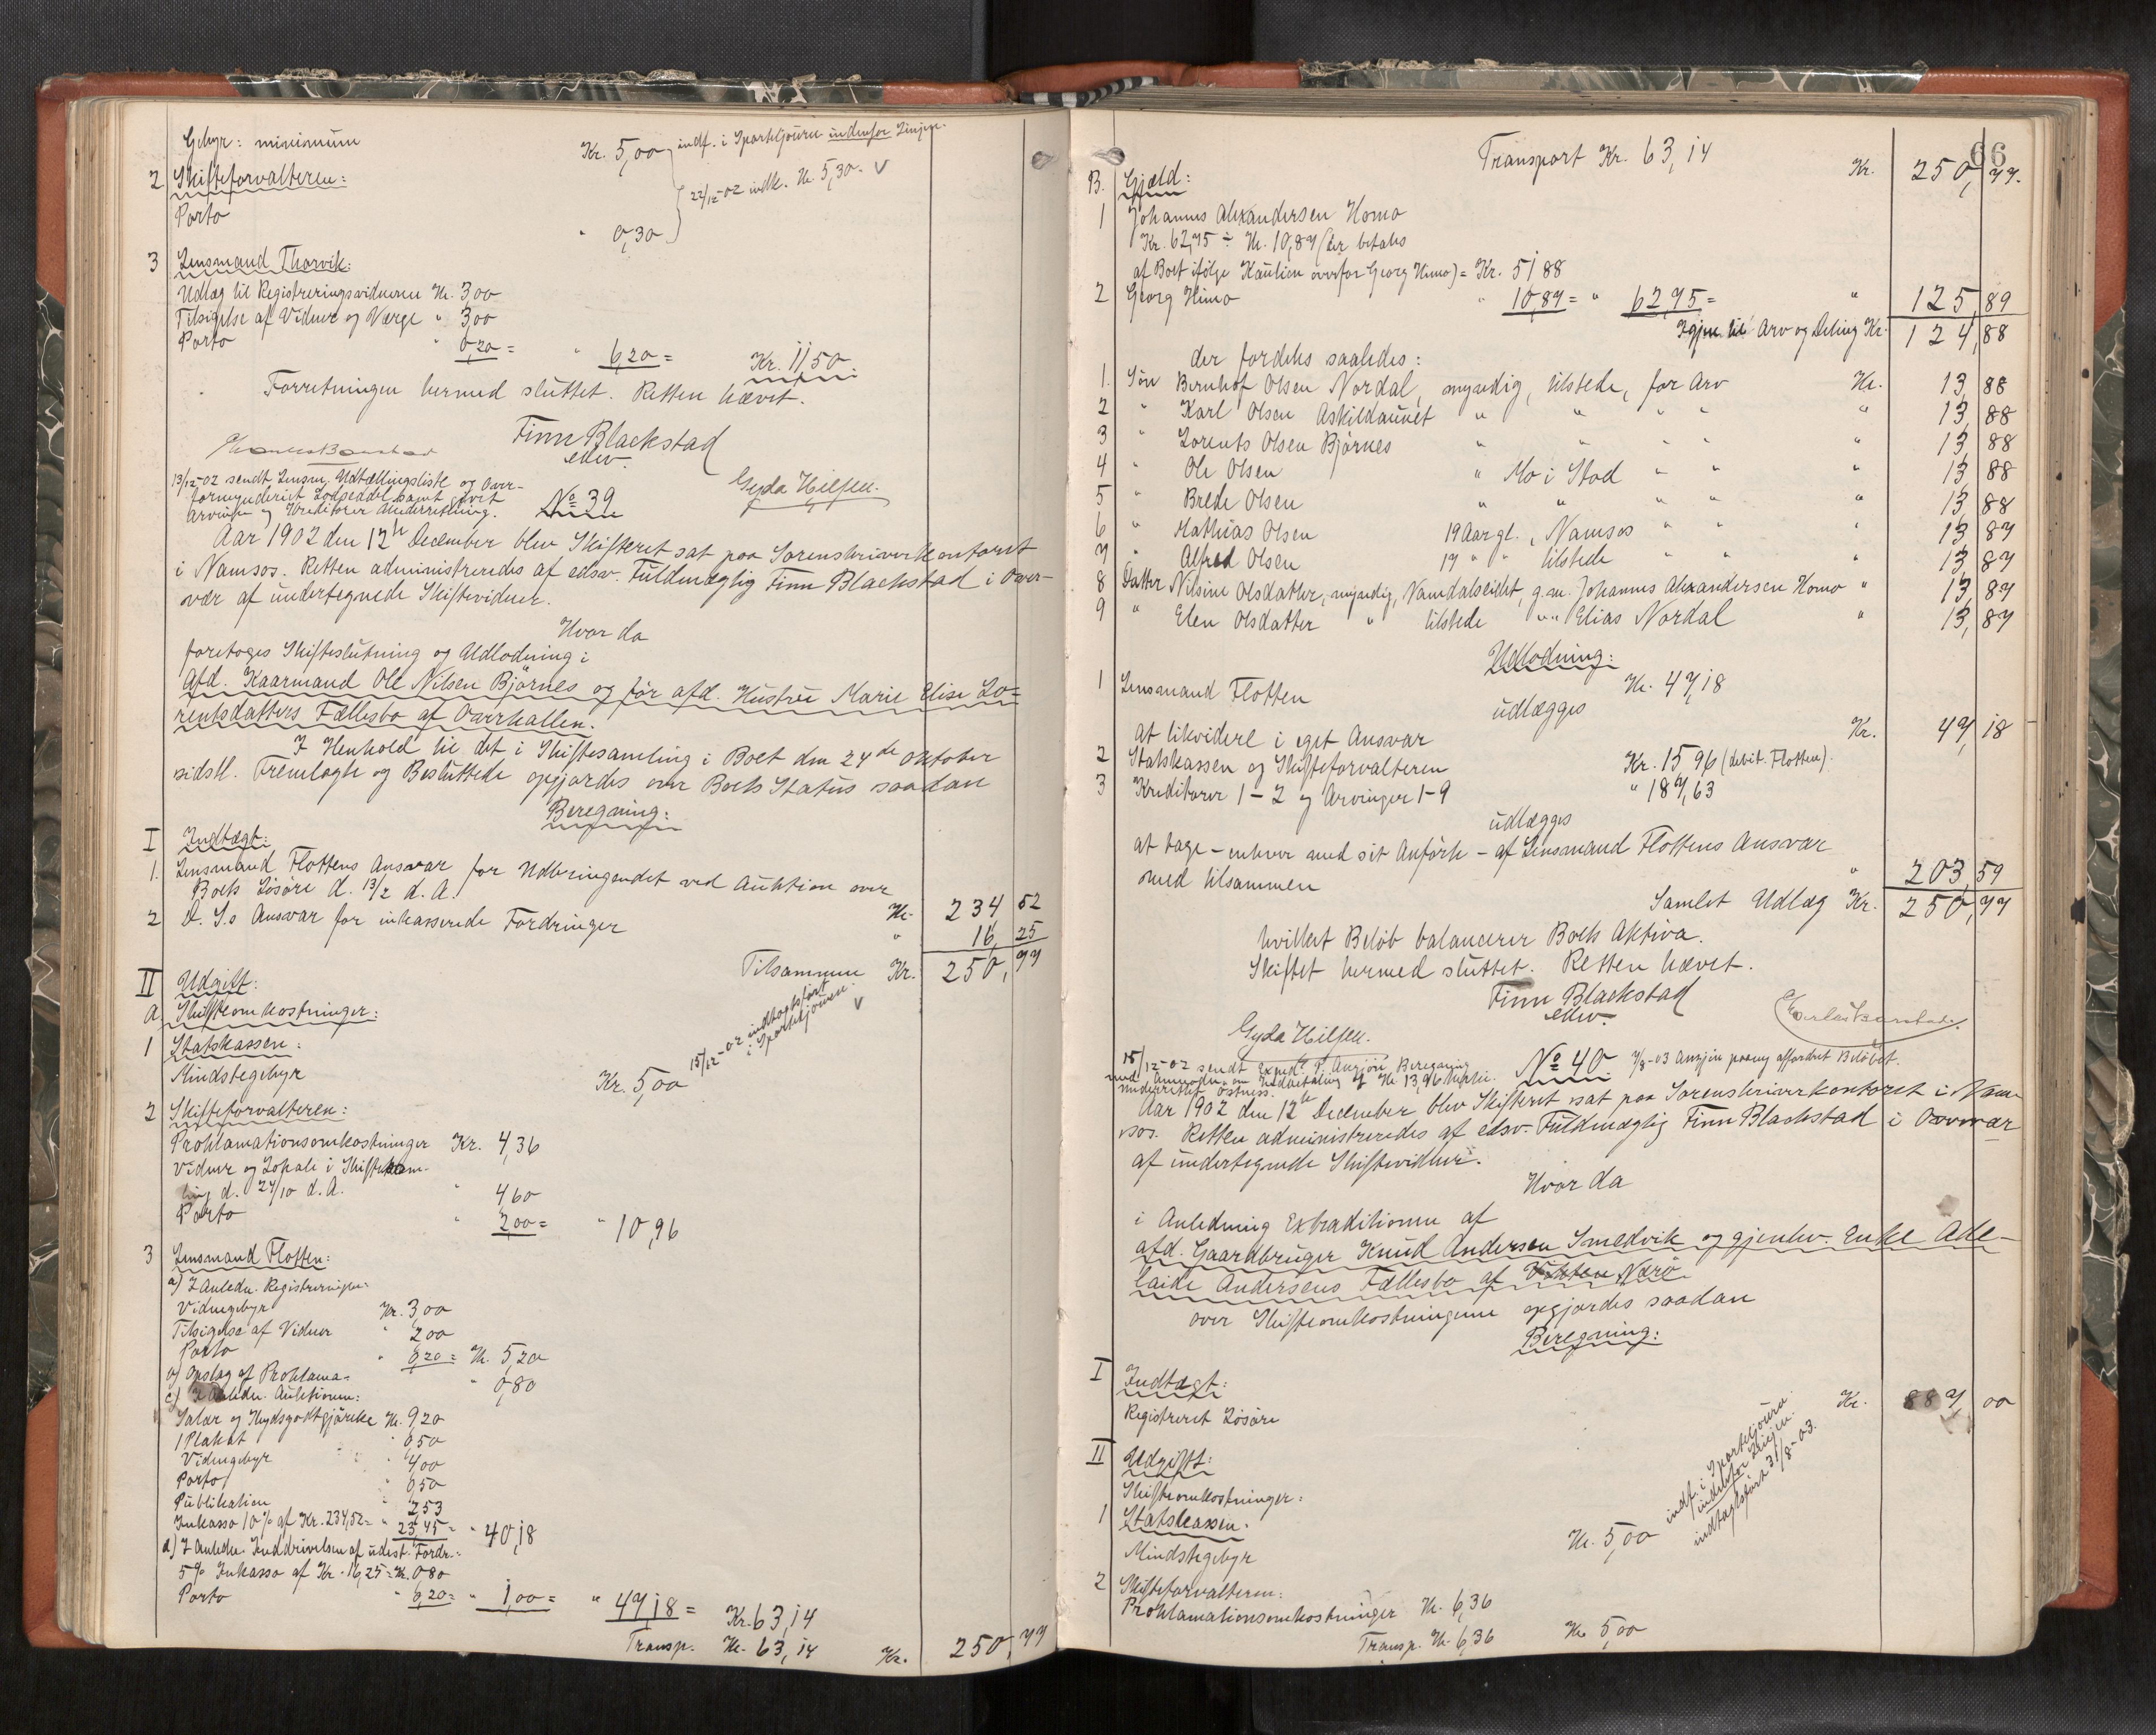 Gebyr: minimum Kr. 5,00 indf. i Sporteljourn. indenfor Linjen.
2 Skifteforvalteren: 22/12-02 indk. Kr. 5,30. ✓
Porto " 0,30
3 Lensmand Thorvik:
Udlæg til Registreringsvidnerne Kr. 3,00
Tilsigelse af Vidner og Værge " 3,00
Porto " 0,20 = " 6,20 = Kr. 11,50
Forretningen hermed sluttet. Retten hævet.
Finn Blackstad
edsv.
Gyda Hilsen.
13/12-02 sendt Lensm. Udtællingsliste og Over-
formynderiet Lodseddel samt givet
Arvinger og Kreditorer Underretning. No 39
Aar 1902 den 12te December blev Skifteret sat paa Sorenskriverkontoret
i Namsos. Retten administreredes af edsv. Fuldmægtig Finn Blackstad i Over-
vær af undertegnede Skiftevidner.
Hvor da
foretoges Skifteslutning og Udlodning i
Afd. Kaarmand Ole Nilsen Bjørnes og før afd. Hustru Marie Elise Lo-
rentsdatters Fællesbo af Overhallen.
I Henhold til det i Skiftesamling i Boet den 24de Oktober
sidstl. Fremlagte og Besluttede opgjordes over Boets Status saadan
Beregning:
I Indtægt:
1. Lensmand Flottens Ansvar for Udbringendet ved Auktion over
Boets Løsøre d. 13/2 d. A. Kr. 234 52
2 D. S.s Ansvar for inkasserede Fordringer " 16, 25
Tilsammen Kr. 250, 77
II Udgift:
A Skifteomkostninger:
1 Statskassen: 15/12-02 indtægtsført
i Sporteljournal. ✓
Mindstegebyr Kr. 5,00
2 Skifteforvalteren:
Proklamationsomkostninger Kr. 4,36
Vidner og Lokale i Skiftesam-
ling d. 24/10 d. A. " 4 60
Porto " 2,00 = " 10,96
3 Lensmand Flotten:
a) I Anledn. Registreringen:
Vidnegebyr Kr. 3,00
Tilsigelse af Vidner " 2 00
Porto " 0,20 = Kr. 5,20
b) Opslag af Proklama " 0,80
c) I Anledn. Auktionen:
Salær og Skydsgodtgjørelse Kr. 9,20
1 Plakat " 0,50
Vidnegebyr " 4,00
Porto " 0,50
Publikation " 2,53
Inkasso 10 % af Kr. 234,52 = " 23,45 = " 40,18
d) I Anledn. Inddrivelsen af udest. Fordr.:
5 % Inkasso af Kr. 16,25 = Kr. 0 80
Porto " 0,20 = " 1,00 = " 47,18 = Kr. 63,14
Transp. Kr. 63,14 Kr. 250,77
66
Transport Kr. 63,14 Kr. 250,77.
B. Gjæld:
1 Johannes Alexandersen Homo
Kr. 62,75 ÷ Kr. 10,87 (der betales
af Boet ifølge Kaution overfor Georg Himo) = Kr. 51 88
2 Georg Himo " 10,87 = " 62,75 = " 125,89
Igjen til Arv og Deling Kr. 124,88
der fordeles saaledes:
1. Søn Bernhof Olsen Nordal, myndig, tilstede, for Arv Kr. 13, 88
2 " Karl Olsen Askildaunet " " " " " 13, 88
3 " Lorents Olsen Bjørnes " " " " " 13, 88
4 " Ole Olsen " Mo i Stod " " " 13, 88
5 " Brede Olsen " " " " " 13, 88
6 " Mathias Olsen 19 Aar gl., Namsos " " " 13, 87
7 " Alfred Olsen 17 " " tilstede " " " 13, 87
8 Datter Nilsine Olsdatter, myndig, Namdalseidet, g. m. Johannes Alexandersen Homo " 13, 87
9 " Elen Olsdatter " tilstede " " Elias Nordal " 13, 87
Udlodning:
1 Lensmand Flotten Kr. 47,18
udlægges
at likvidere i eget Ansvar Kr. 47, 18
2 Statskassen og Skifteforvalteren Kr. 15 96 (debit. Flotten).
3 Kreditorer 1-2 og Arvinger 1-9 " 187,63
udlægges
at tage - enhver med sit Anførte - af Lensmand Flottens Ansvar
med tilsammen " 203,59
Samlet Udlæg Kr. 250,77
hvilket Beløb balancerer Boets Aktiva.
Skiftet hermed sluttet. Retten hævet.
Finn Blackstad
edsv.
Gyda Hilsen.
15/12-02 sendt Beregning No 40
Aar 1902 den 12te December blev Skifteret sat paa Sorenskriverkontoret i Nam-
sos. Retten administreredes af edsv. Fuldmægtig Finn Blackstad i Overvær
af undertegnede Skiftevidner.
Hvor da
i Anledning Extraditionen af
afd. Gaardbruger Knud Andersen Smedvik og gjenlev. Enke Ade-
laide Andersens Fællesbo af Vikten Nærø
over Skifteomkostningerne opgjordes saadan
Beregning:
I Indtægt:
Registreret Løsøre Kr. 887, 00
II Udgift:
Skifteomkostninger:
1 Statskassen: indf. i Sporteljourn.
indenfor Linjen.
indtægtsført 31/8-03.
Mindstegebyr Kr. 5,00
2 Skifteforvalteren:
Proklamationsomkostninger Kr. 6,36
Transp. Kr. 6,36 Kr. 5,00